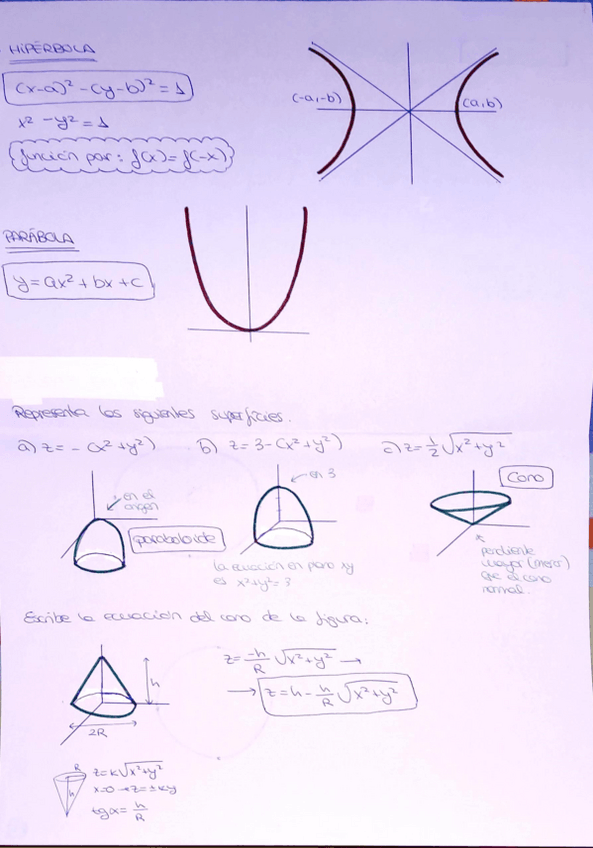 HIPÉRBOLA
(x-a)² - (y-b)² = 1
x² - y² = 1
función par: f(x) = f(-x)
(-a,-b)
(a,b)
PARÁBOLA
y = ax² + bx + c
Representa las siguientes superficies.
a) z = - (x² + y²)
b) z = 3 - (x² + y²)
c) z = 1/2 √x² + y²
en el
origen
paraboloide
en 3
la ecuación en plano xy
es x² + y² = 3
cono
pendiente
mayor (menor)
que el cono
normal.
Escribe la ecuación del cono de la figura:
h
2R
z = -h/R √x² + y² →
→ z = h - h/R √x² + y²
R
h
z = k√x² + y²
x=0 → z = ± ky
tgα = h/R